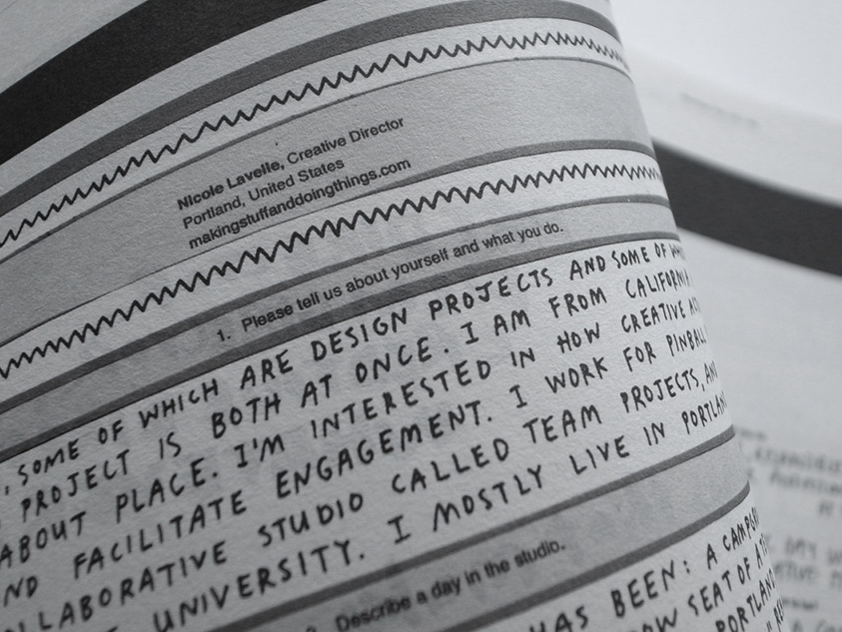 Nicole Lavelle, Creative Director
Portland, United States
makingstuffanddoingthings.com
1. Please tell us about yourself and what you do.
, SOME OF WHICH ARE DESIGN PROJECTS AND SOME OF
PROJECT IS BOTH AT ONCE. I AM FROM CALIFORNIA
ABOUT PLACE. I'M INTERESTED IN HOW CREATIVE
ND FACILITATE ENGAGEMENT. I WORK FOR PINBALL
LLABORATIVE STUDIO CALLED TEAM PROJECTS, AN
UNIVERSITY. I MOSTLY LIVE IN PORTLAN
Describe a day in the studio.
HAS BEEN: A CAMPGR
OW SEAT OF A
PORTLAND